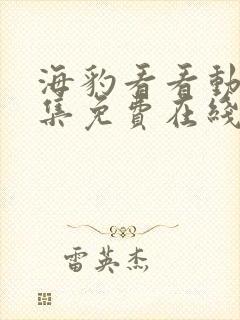 海豹看看動
集免費在綫
雷英杰